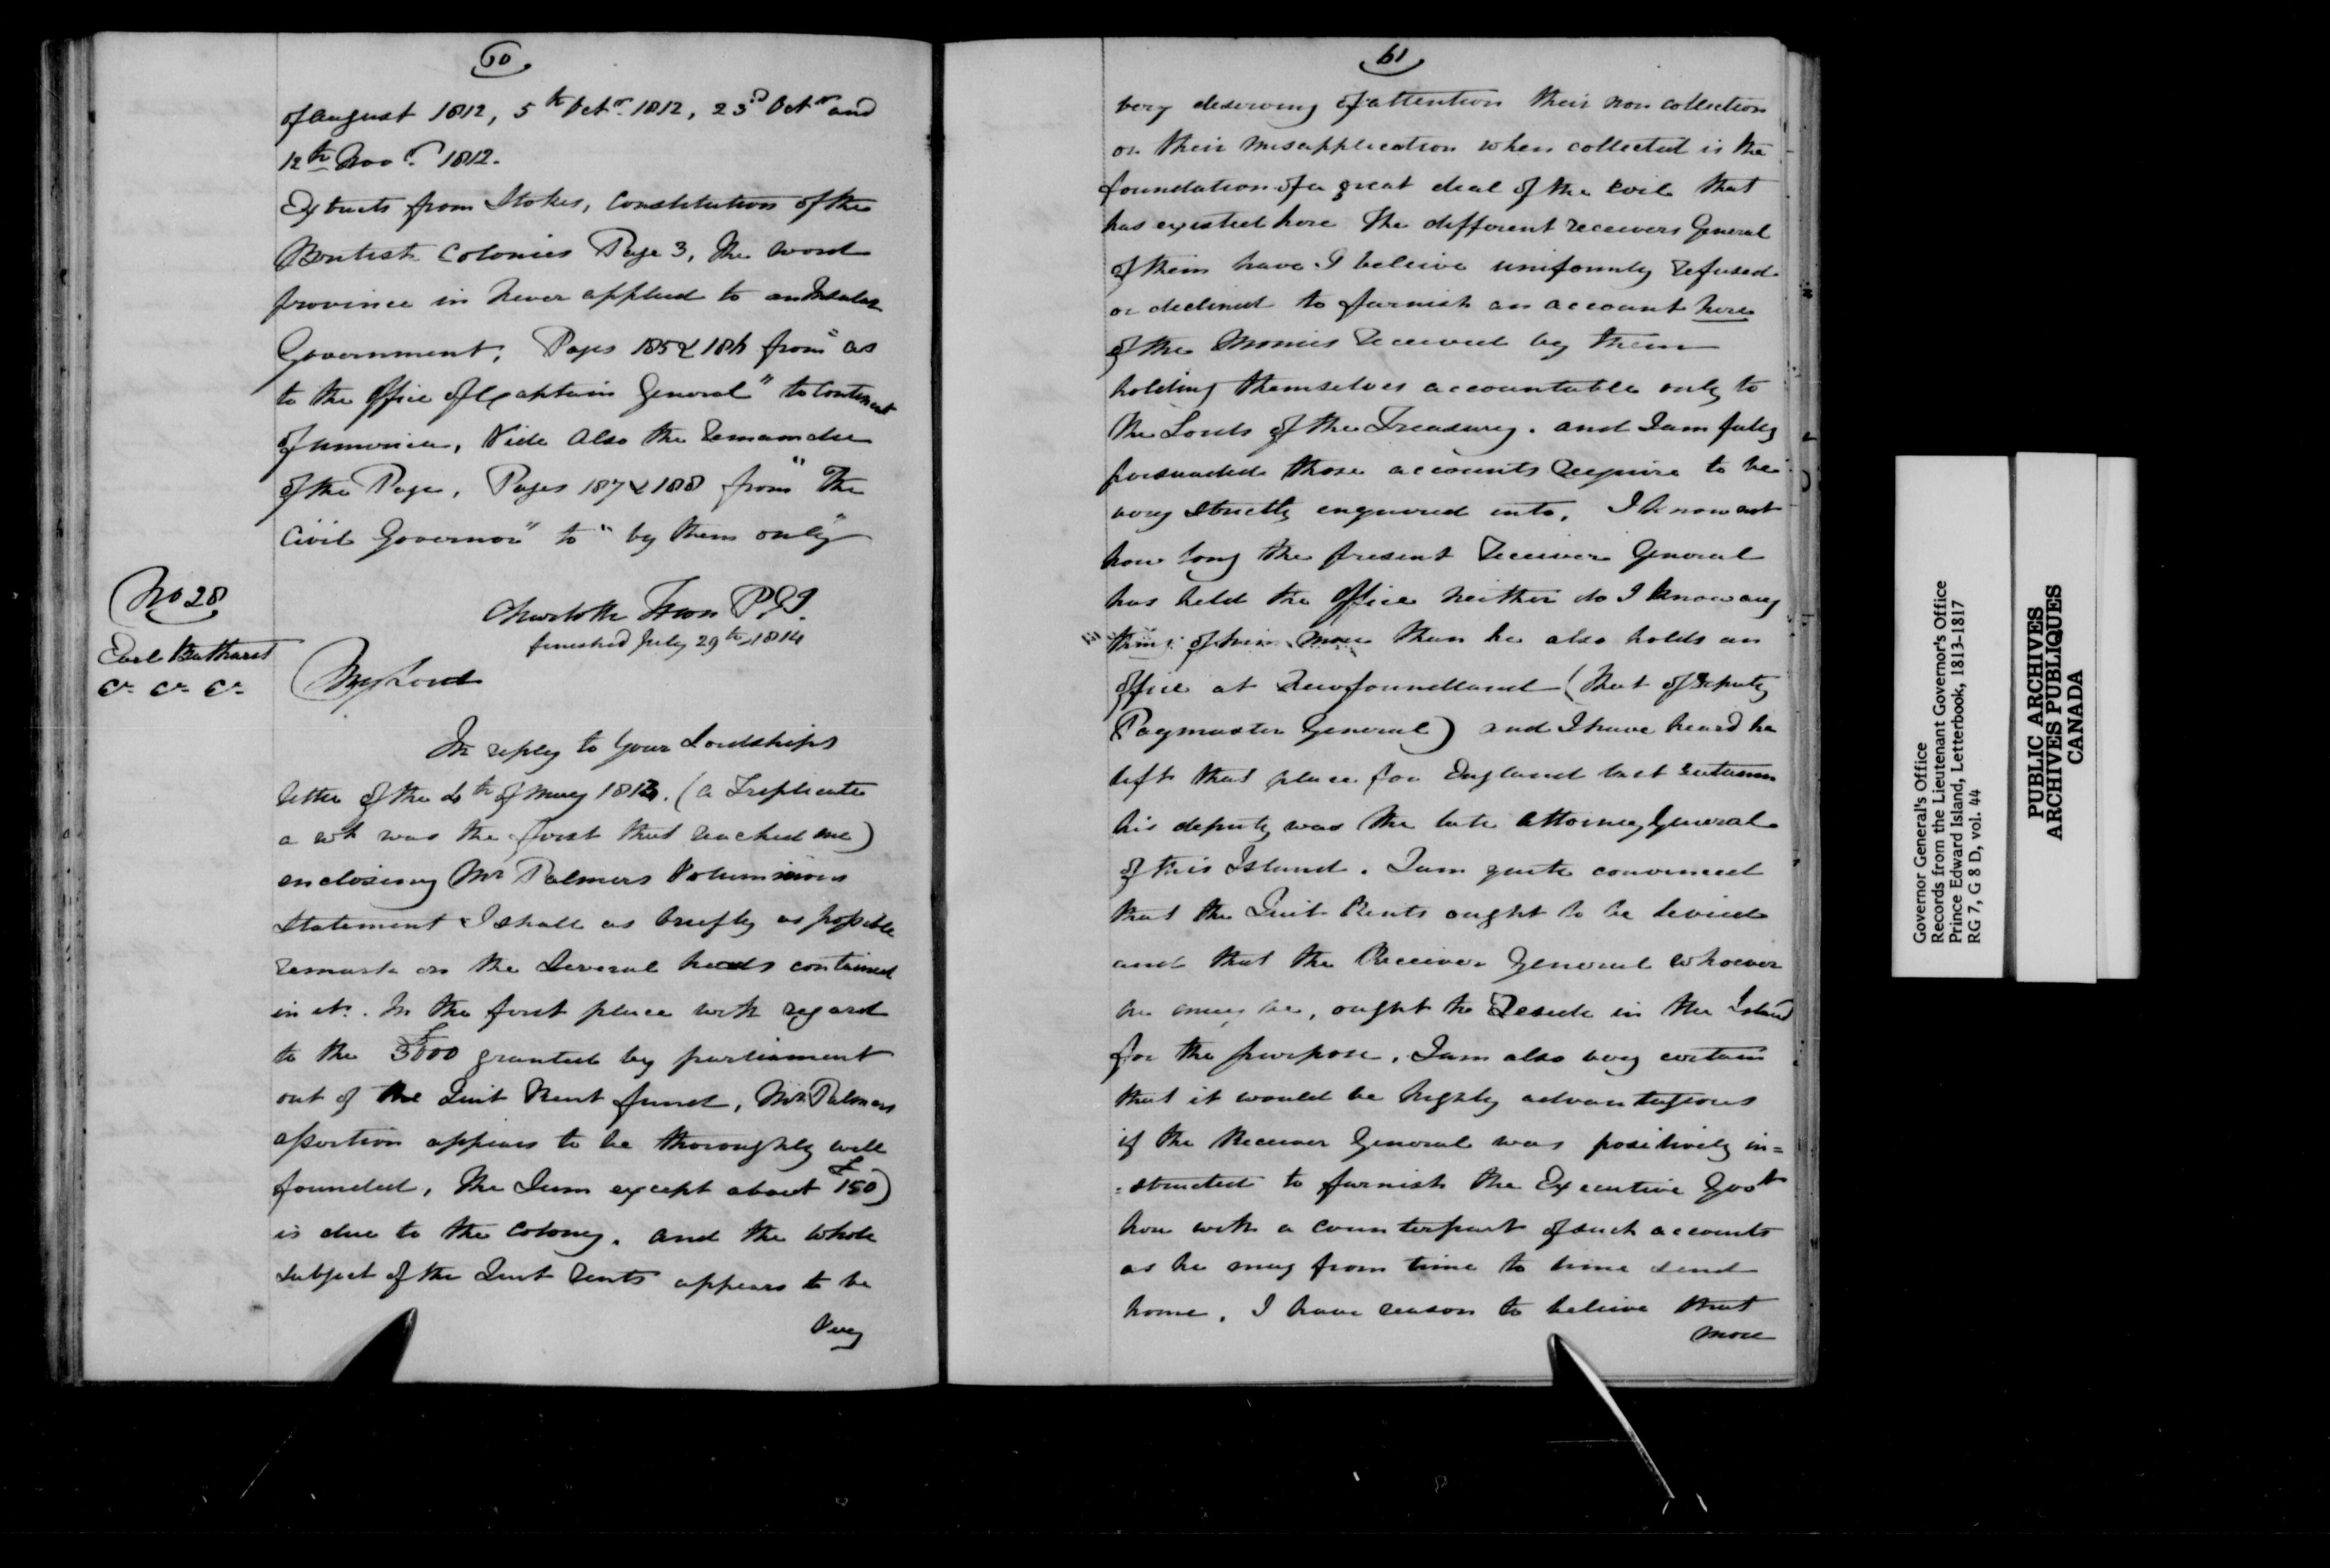 60
of August 1812, 5th Octr. 1812, 23d Octr and
12th Novr. 1812.
Extracts from Stokes, Constitution of the
British Colonies Page 3, the word
province in never applied to an Insular
Government; Pages 185 & 186 from "as
to the Office of Captain General" to Continent
of America, Vide Also the Remainder
of the Page, Pages 187 & 188 from "The
Civil Governor" to "by them only"
No 28
Earl Bathurst
&c &c &c
Charlotte Town P.E.I.
finished July 29th 1814
My Lord
In reply to Your Lordships
letter of the 4th of May 1813. (a Triplicate
a wh was the first that reached me)
enclosing Mr Palmers Voluminous
Statement I shall as briefly as possible
remark on the Several heads contained
in it. In the first place with regard
to the £3000 granted by parliament
out of the Quit Rent fund, Mr Palmers
assertion appears to be thoroughly well
founded, The Sum except about £150)
is due to the Colony. and the whole
subject of the Quit Rents appears to be
Very
61
very deserving of attention their non collection
or their misapplication when collected is the
foundation of a great deal of the evil that
has existed here The different receivers General
of them have I beleive uniformly refused
or declined to furnish an account here
of the Monies received by them
holding themselves accountable only to
the Lords of the Treasury. and I am fully
persuaded those accounts require to be
very strictly enquired into. I know not
how long the present Receiver General
has held the Office neither do I know any
thing of him more than he also holds an
office at Newfoundland (that of Deputy
Paymaster General) and I have heard he
left that place for England last autumn
his deputy was the late Attorney General
of this Island. I am quite convinced
that the Quit Rents ought to be levied
and that the Receiver General whoever
he may be, ought to Reside in the Island
for the purpose. I am also very certain
that it would be highly advantageous
if the Receiver General was positively in=
=structed to furnish the Executive Govt
here with a counterpart of such accounts
as he may from time to time send
home. I have reason to believe that
more
Governor General's Office
Records from the Lieutenant Governor's Office
Prince Edward Island, Letterbook, 1813-1817
RG 7, G 8 D, vol. 44
PUBLIC ARCHIVES
ARCHIVES PUBLIQUES
CANADA